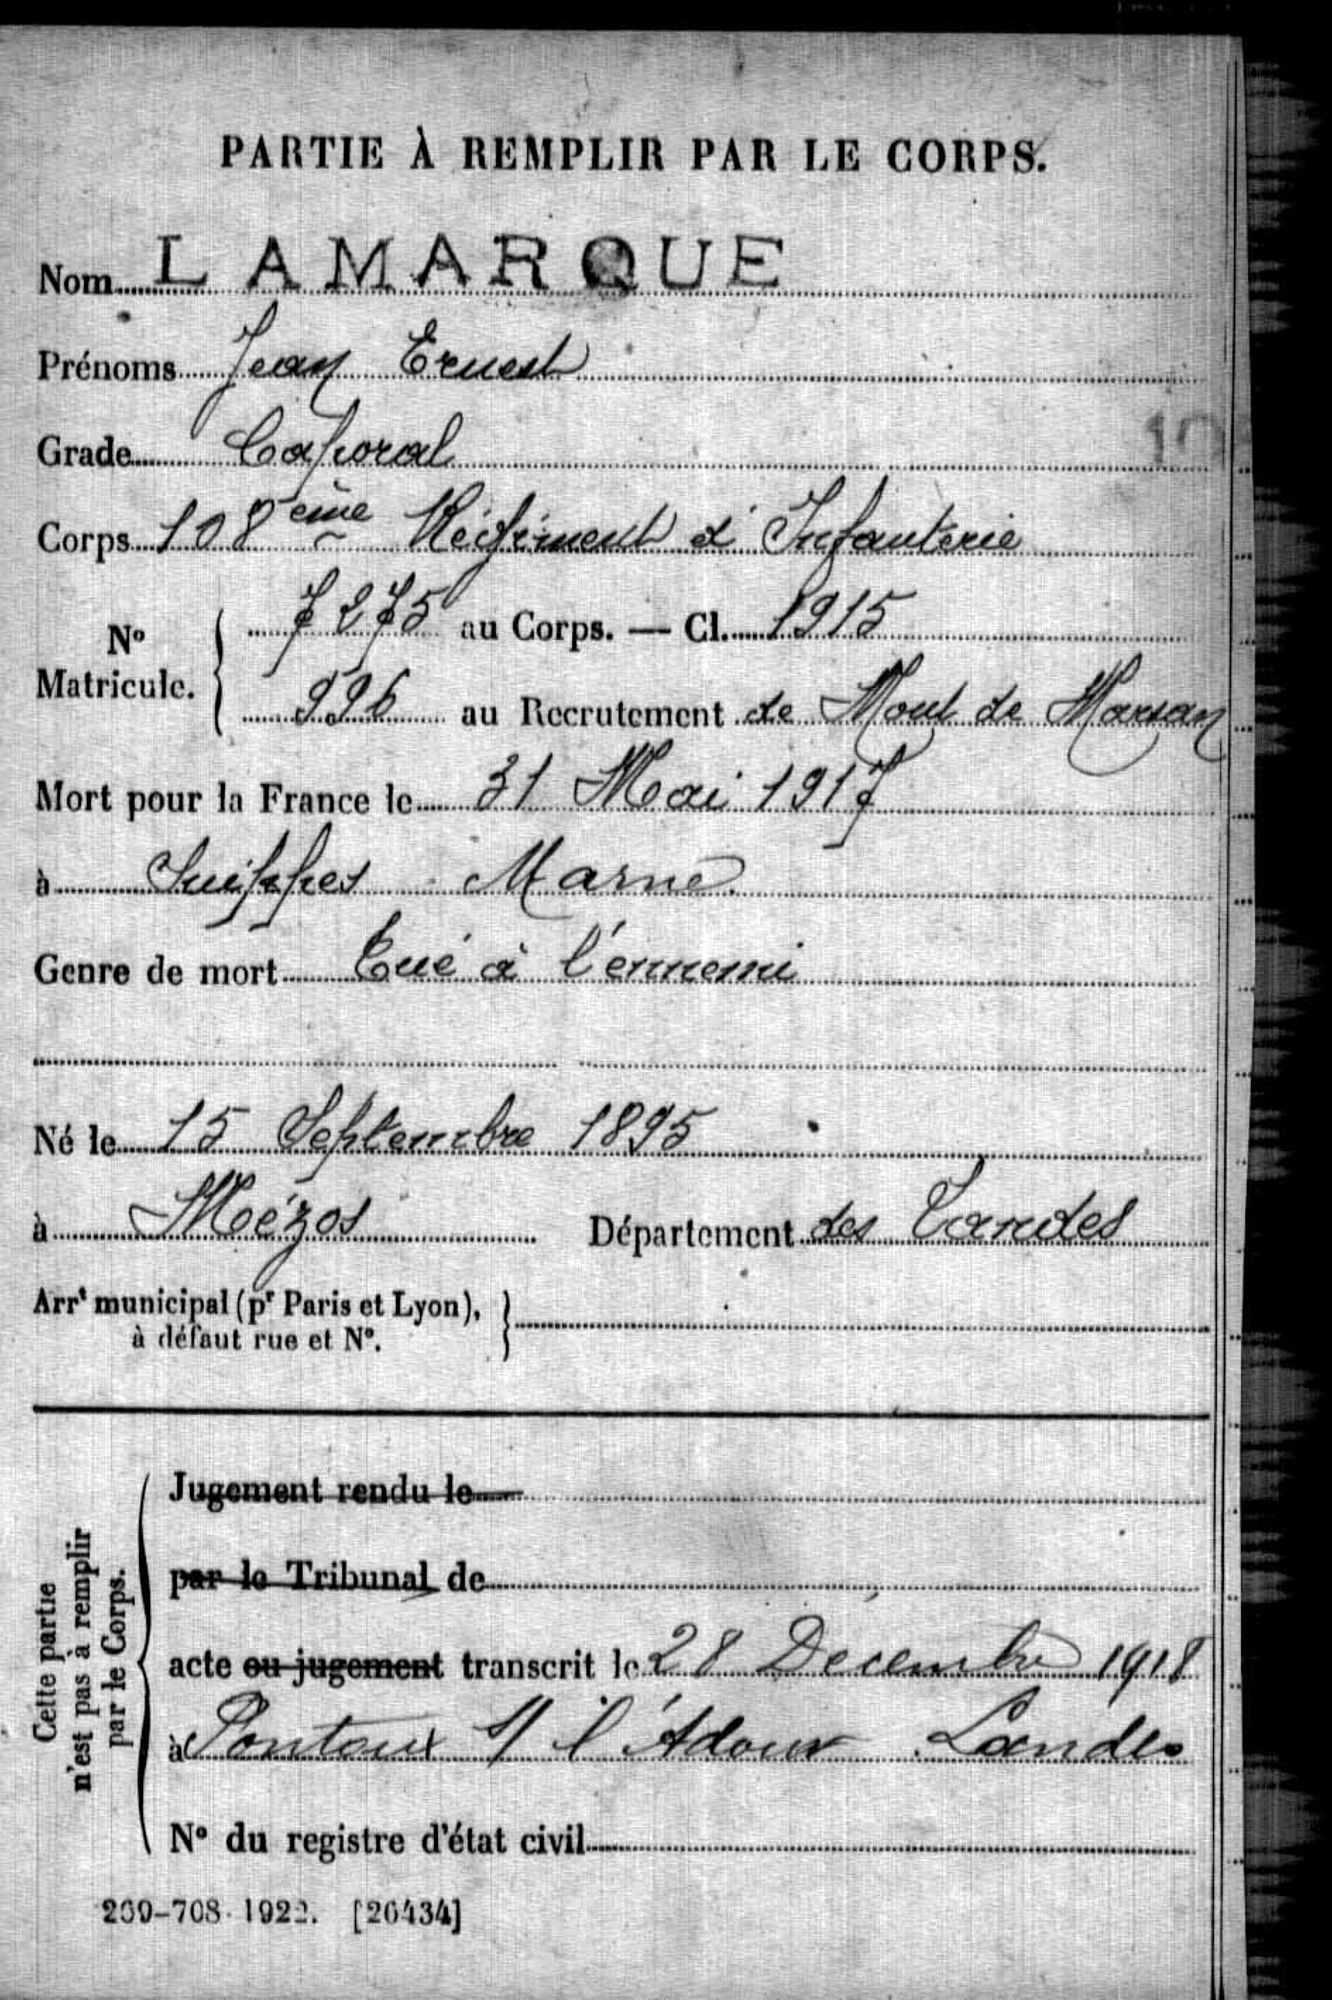 PARTIE À REMPLIR PAR LE CORPS.
Nom LAMARQUE
Prénoms Jean Ernest
Grade Caporal
Corps 108ème Régiment d'Infanterie
No Matricule. { 7275 au Corps. — Cl. 1915
996 au Recrutement de Mont de Marsan
Mort pour la France le 31 Mai 1917
à Suippes Marne.
Genre de mort Tué à l'ennemi
Né le 15 Septembre 1895
à Mézos Département des Landes
Arrt municipal (pr Paris et Lyon),
à défaut rue et No.
Cette partie
n'est pas à remplir
par le Corps.
Jugement rendu le
par le Tribunal de
acte ou jugement transcrit le 28 Décembre 1918
à Pontoux s/ l'Adour Landes
No du registre d'état civil
269-708. 1922. [26434]